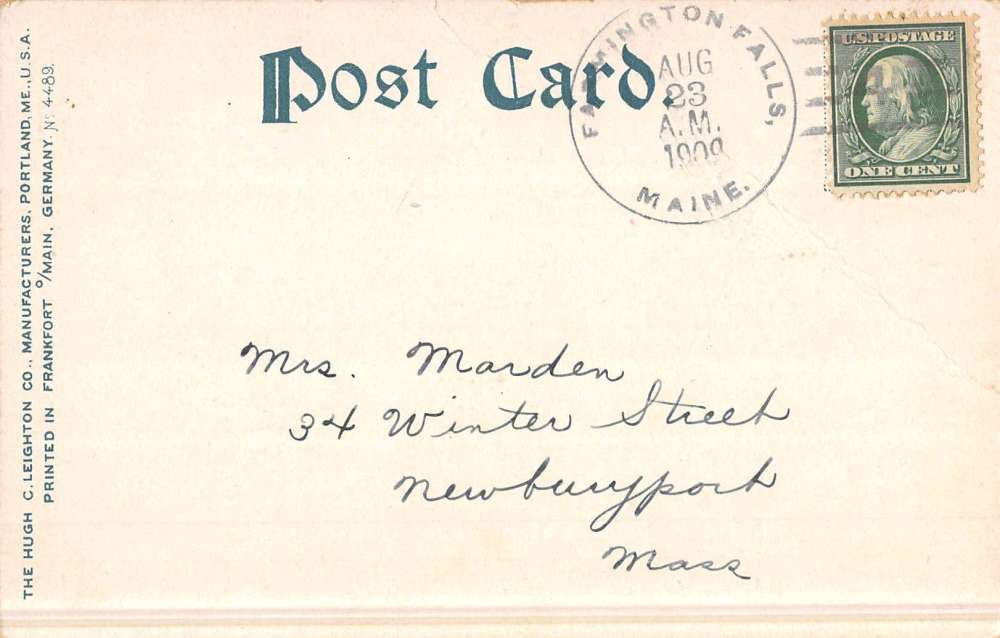 Post Card.
FARMINGTON FALLS,
AUG
23
A.M.
1909
MAINE.
U.S. POSTAGE
ONE CENT
Mrs. Marden
34 Winter Street
Newburyport
Mass
THE HUGH C. LEIGHTON CO., MANUFACTURERS, PORTLAND, ME., U.S.A.
PRINTED IN FRANKFORT o/MAIN, GERMANY. No 4489.